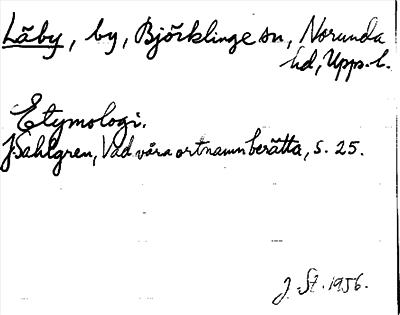 Läby, by, Björklinge sn, Norunda
hd, Upps. l.
Etymologi.
J. Sahlgren, Vad våra ortnamn berätta, s. 25.
J. St. 1956.